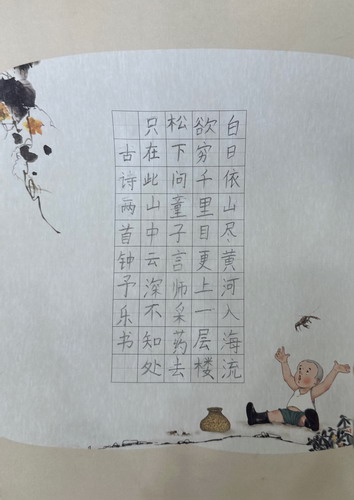 自日依山尽黄河入海流
欲穷千里目更上一层楼
松下问童子言师采药去
只在此山中云深不知处
古诗两首钟予乐书